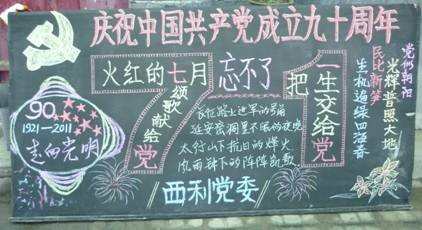 庆祝中国共产党成立九十周年
火红的七月
颂歌献给党
忘不了
把一生交给党
90
1921-2011
走向光明
长征路上进军的号角
延安窑洞里不眠的夜晚
太行山下抗日的烽火
风雨钟下的阵阵
西利党委
党似朝阳
光辉普照大地
民比新笋
生机遍绿四海春